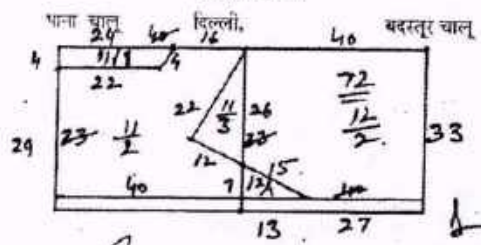 पाना चालू दिल्ली, बदस्तूर चालू
24 40 16 40
4 11/1 4
22
22 11/3 26 72
29 23 11/2 23 12/2 33
12 15
40 7 12/1 40
13 27